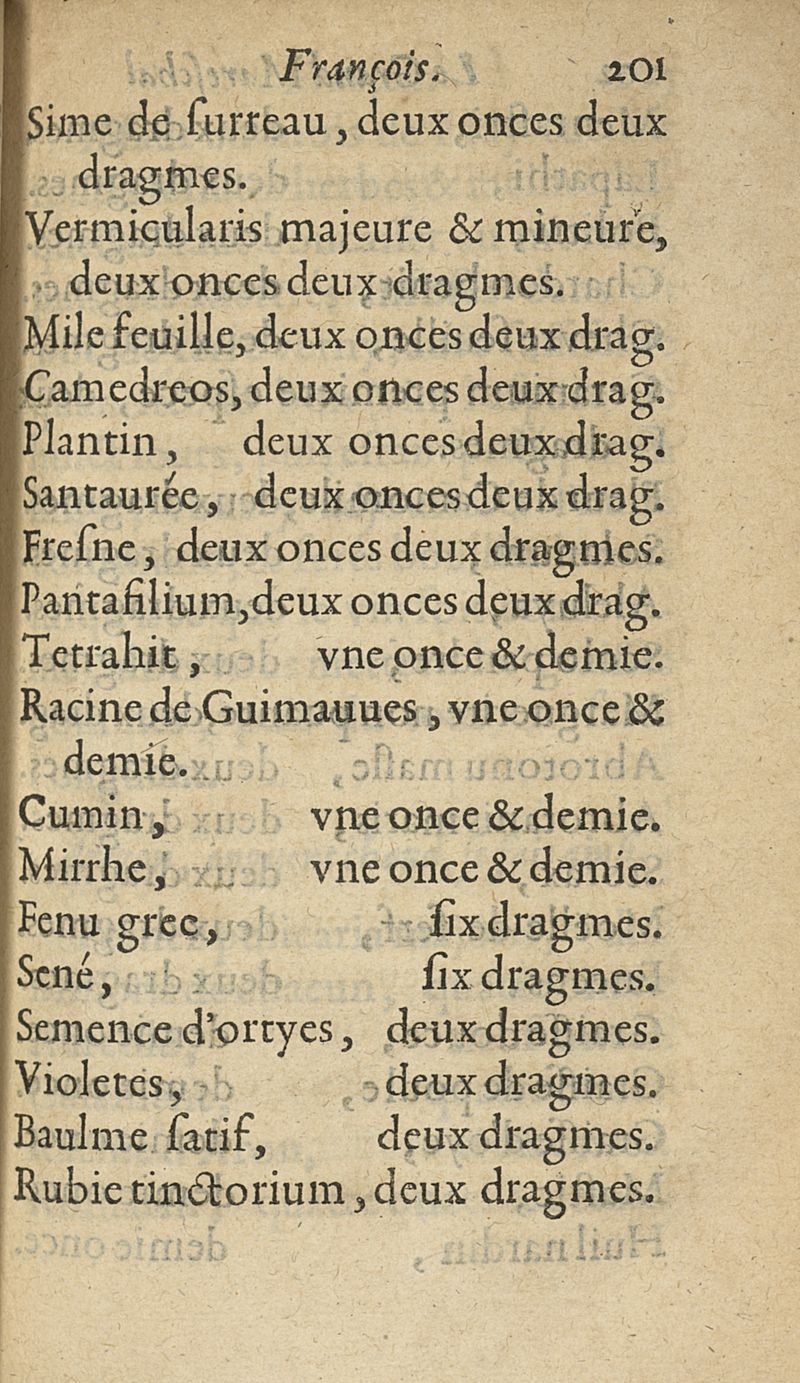 François. 201
Sime de ſurreau, deux onces deux
dragmes.
Vermicularis majeure & mineure,
deux onces deux dragmes.
Mile feuille, deux onces deux drag.
Camedreos, deux onces deux drag.
Plantin, deux onces deux drag.
Santaurée, deux onces deux drag.
Freſne, deux onces deux dragmes.
Pantafilium, deux onces deux drag.
Tetrahit, vne once & demie.
Racine de Guimauues, vne once &
demie.
Cumin, vne once & demie.
Mirrhe, vne once & demie.
Fenu grec, ſix dragmes.
Sené, ſix dragmes.
Semence d'ortyes, deux dragmes.
Violetes, deux dragmes.
Baulme ſatif, deux dragmes.
Rubie tinctorium, deux dragmes.